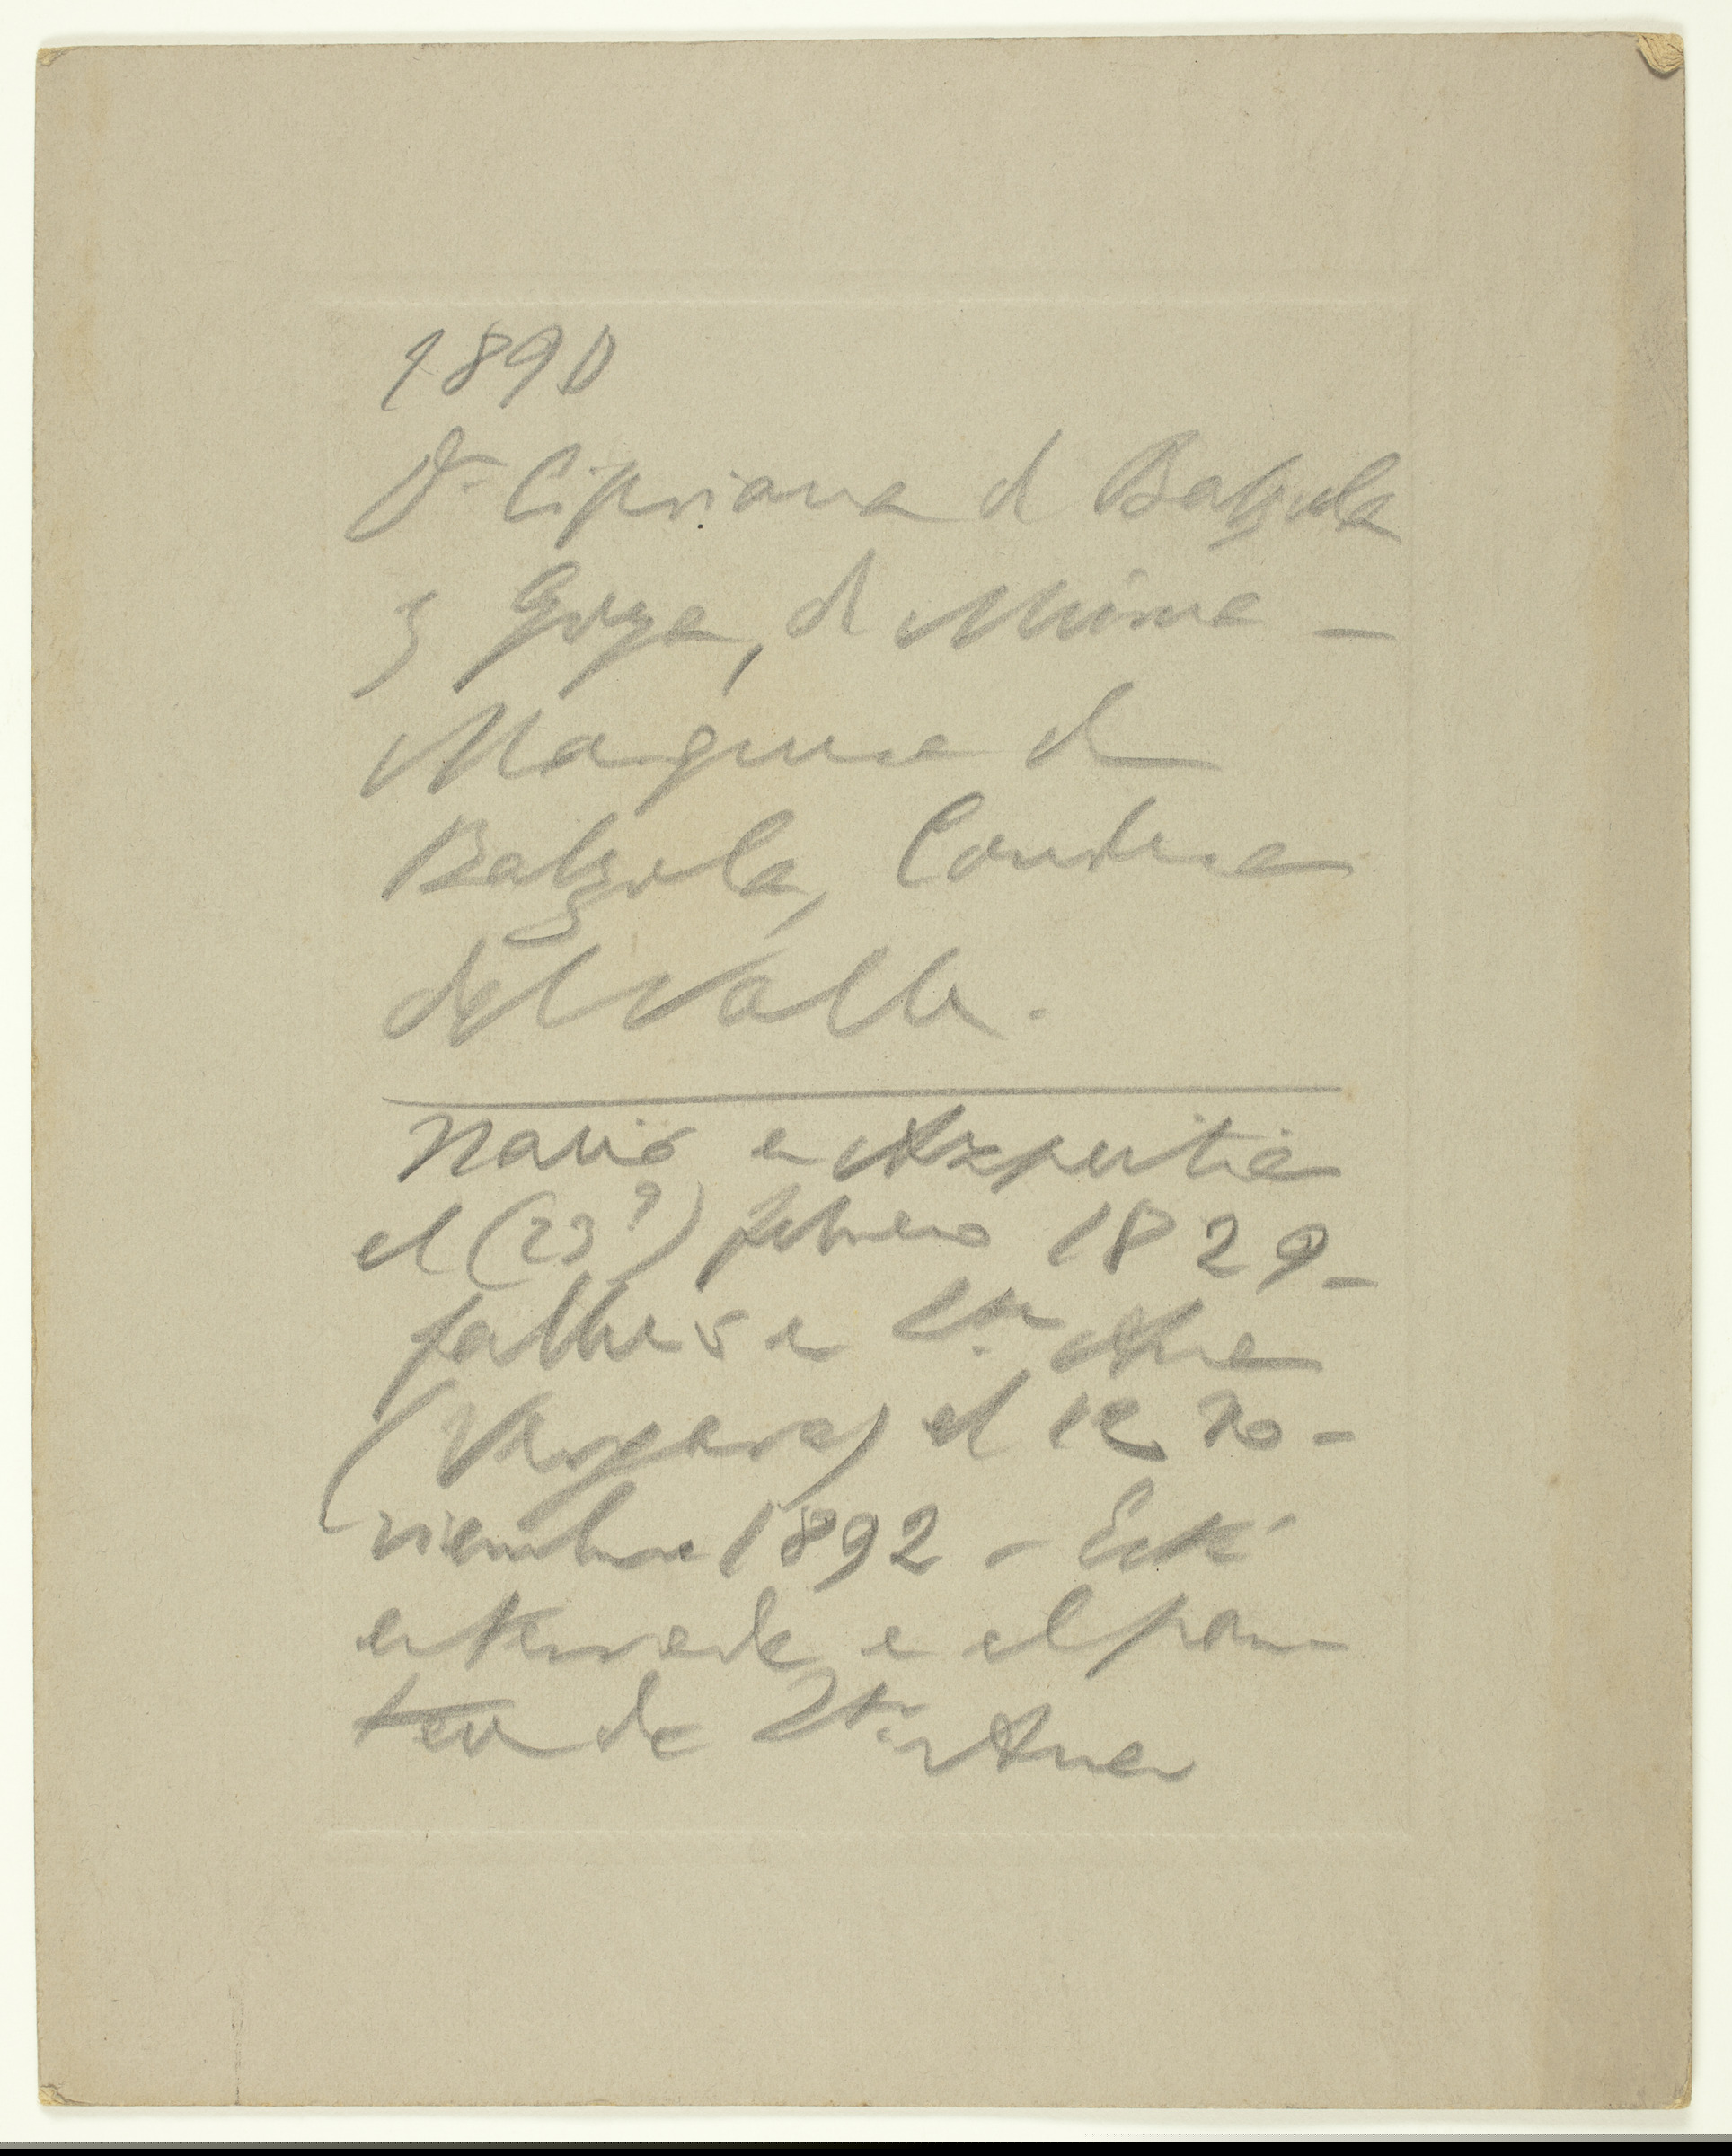 1890
Dª Cipriana de Balzola
y Goya, de Munive –
Marquesa de
Balzola, Condesa
del Valle.
Nació en Azpeitia
el (23?) febrero 1829 –
falleció en Sta. Ana
(Vergara) el 12 No-
viembre 1892 – Está
enterrada en el pan-
teon de Sta. Ana